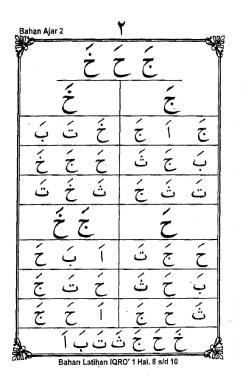 Bahan Ajar 2
٢
جَ حَ خَ
جَ خَ
جَ اَ جَ خَ تَ بَ
بَ جَ ثَ حَ جَ خَ
تَ ثَ جَ ثَ خَ تَ
حَ جَ خَ
حَ جَ تَ اَ بَ حَ
بَ حَ ثَ حَ تَ جَ
ثَ حَ جَ اَ حَ جَ
خَ حَ جَ ثَ تَ بَ اَ
Bahan Latihan IQRO' 1 Hal. 8 s/d 10